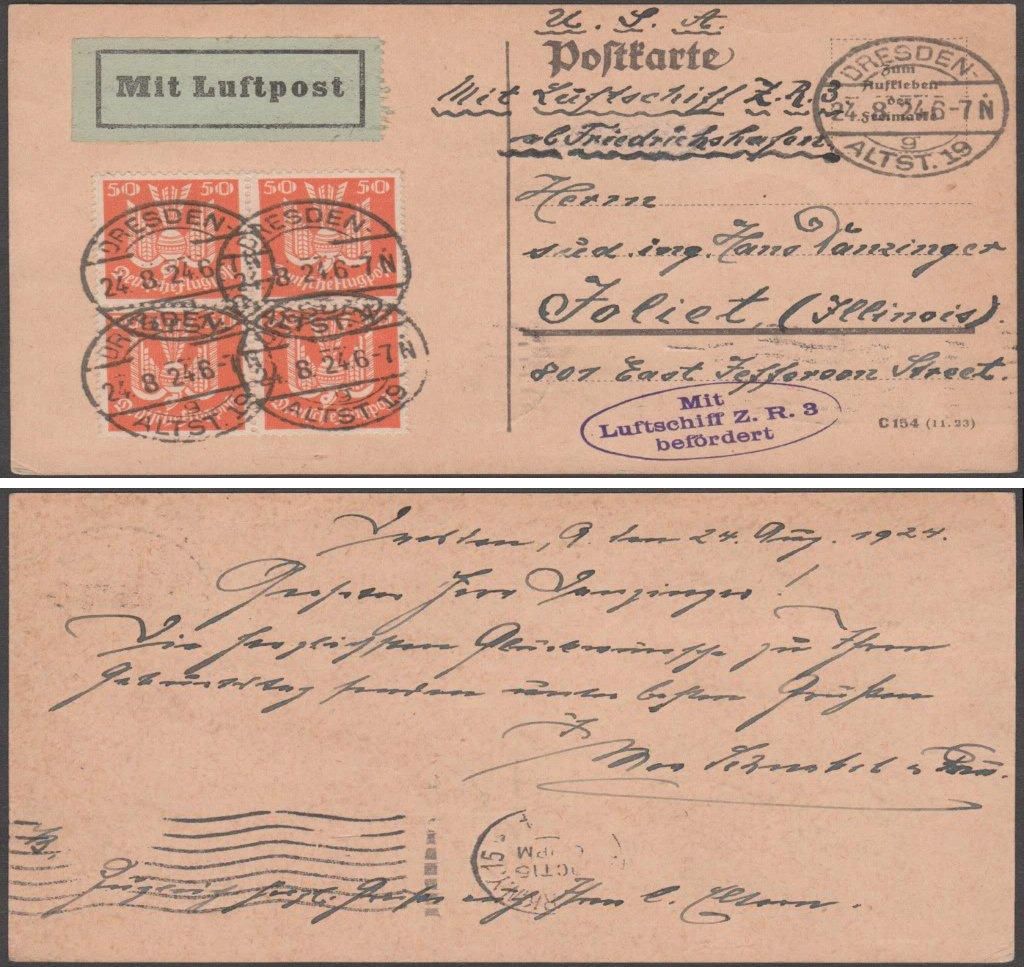 U. S. A.
Postkarte
Mit Luftpost
Mit Luftschiff Z. R. 3
ab Friedrichshafen
DRESDEN-
24.8.24.6-7N
g
ALTST. 19
Zum
Aufkleben
der
Freimarke
Herrn
stud. ing. Hans Danzinger
Joliet, (Illinois).
801 East Jefferson Street.
Mit
Luftschiff Z. R. 3
befördert
C 154 (11.23)
50 50
50 50
Deutsche Flugpost
Deutsche Flugpost
DRESDEN-
24.8.24.6-7N
ALTST. 19
DRESDEN-
24.8.24.6-7N
g
ALTST. 19
Dresden, A. den 24. Aug. 1924.
Geehrter Herr Danzinger!
Die herzlichsten Glückwünsche zu Ihrem
Geburtstag senden unter besten Grüßen
Max u. Frau.
OCT 15
PM
15
Zugleich herzl. Grüße auch Ihren l. Eltern.